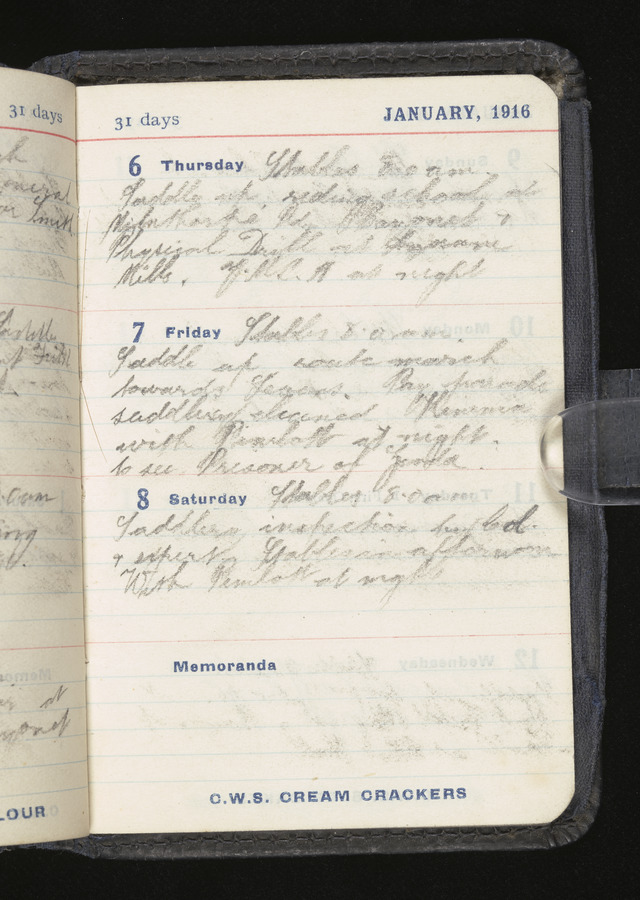 31 days
31 days JANUARY, 1916
6 Thursday Stables 8.0 a.m.
Saddle up, riding school at
Rd Bayonet &
Physical Drill at
Mills. Y.M.C.A at night
7 Friday Stables 8.0 a.m.
Saddle up route march
towards Pay parade
saddlery cleaned Kinema
with Pimlott at night.
to see Prisoner of Zenda.
8 Saturday Stables 8.0 am
Saddlery inspection by Col.
& expert, Stables in afternoon
With Pimlott at night
Memoranda
C.W.S. CREAM CRACKERS
LOUR